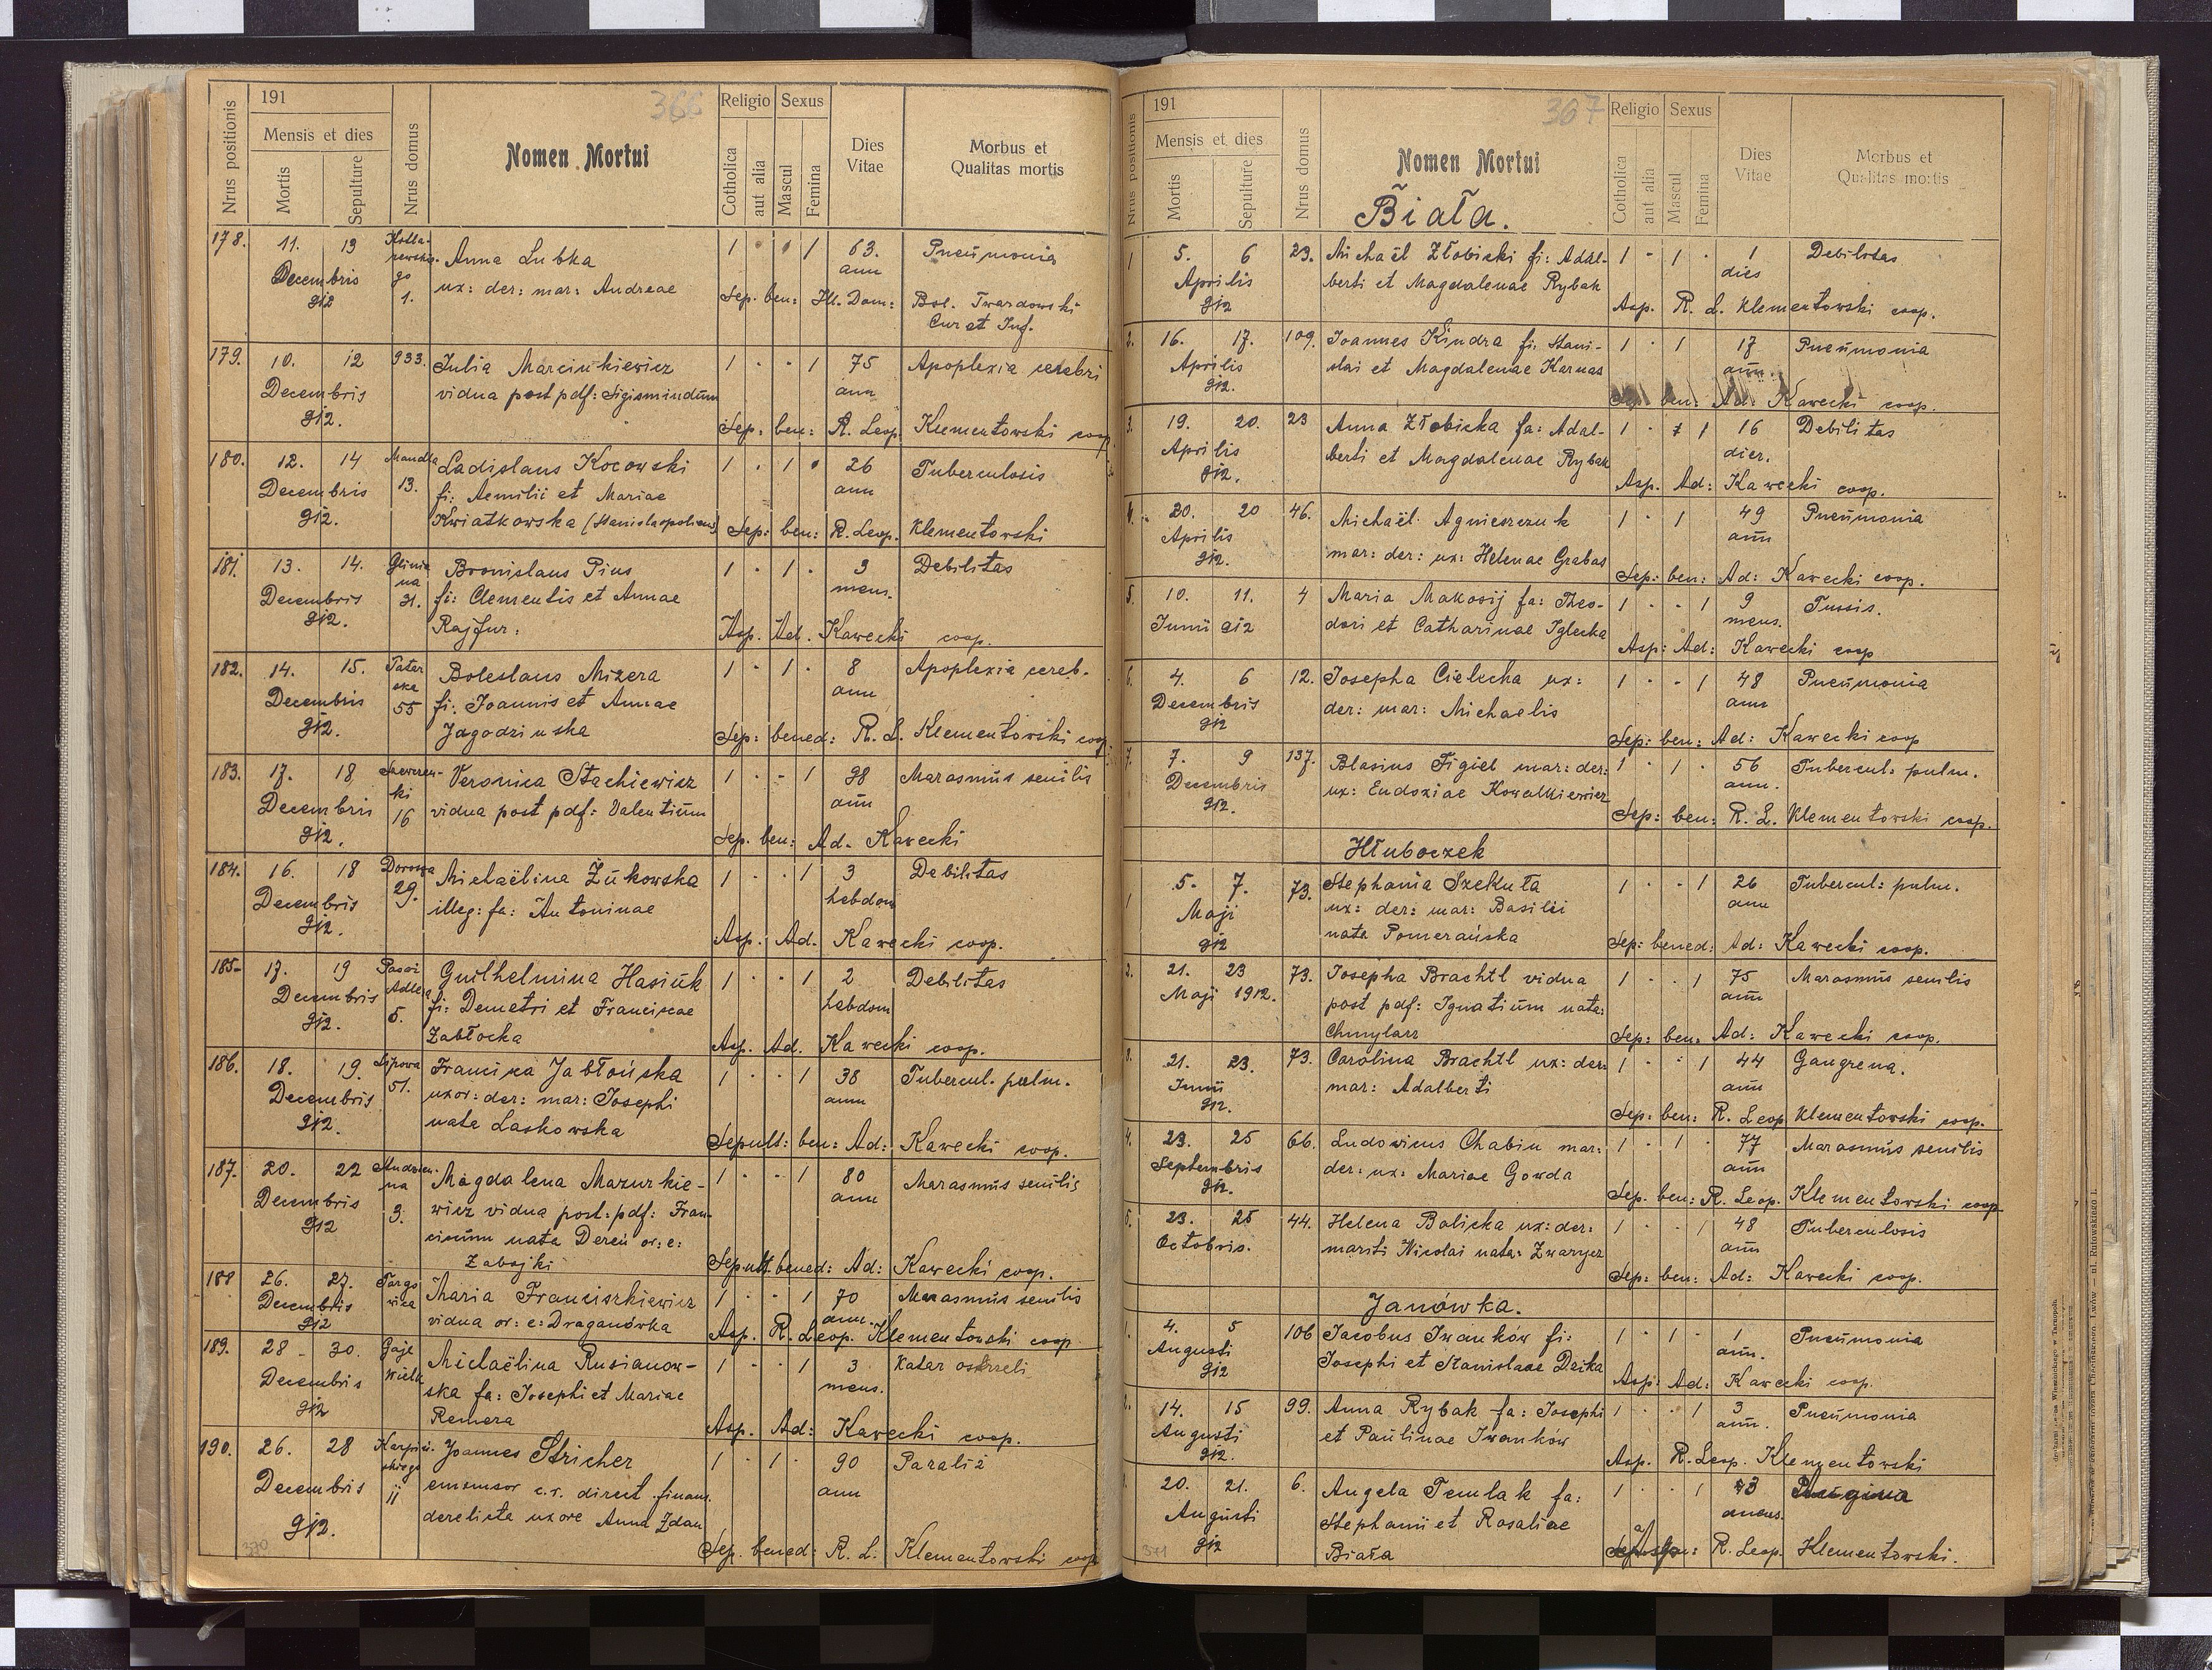 366
191
Nrus positionis
Mensis et dies
Mortis
Sepulture
Nrus domus
Nomen Mortui
Religio
Sexus
Cotholica
aut alia
Mascul
Femina
Dies Vitae
Morbus et Qualitas mortis
178. 11. 13 Anna Lubka 1 1 63. Pneumonia
Decembris ux: der: mar: Andreae ann
912 1. Sep. ben: Ill. Dom: Bol. Twardowski
Cur et Inf.
179. 10. 12 933. Julia Marcinkiewicz 1 1 75 Apoplexia cerebri
Decembris vidua post pdf: Sigismindum ann
912. Sep: ben: R. Leop. Klementowski coop.
180. 12. 14 Mandla Ladislaus Kocowski 1 1 26 Tuberculosis
Decembris 13. fi: Aemilii et Mariae ann
912. Kwiatkowska (Stanislaopoliensis) Sep: ben: R. Leop. Klementowski
181. 13. 14. Glinia Bronislaus Pius 1 1 3 Debilitas
Decembris na 31. fi: Clementis et Annae mens.
912. Rajfur. Asp. Ad. Kawecki coop.
182. 14. 15. Tatar Boleslaus Mizera 1 1 8 Apoplexia cereb.
Decembris ska 55 fi: Joannis et Annae ann
912. Jagodzinska Sep: bened: R. L. Klementowski coop.
183. 17. 18 Veronica Stachiewicz 1 1 98 Marasmus senilis
Decembris ki 16 vidua post pdf: Valentium ann
912. Sep. ben: Ad. Kawecki
184. 16. 18 29. Michaëlina Żukowska 1 1 3 Debilitas
Decembris illeg: fa: Antoninae hebdom
912. Asp. Ad. Kawecki coop.
185. 17. 19 Guilhelmina Hasiuk 1 1 2 Debilitas
Decembris Adlera 5. fi: Demetri et Franciscae hebdom
912. Zabłocka Asp. Ad. Kawecki coop.
186. 18. 19. Lipowa Francisca Jabłońska 1 1 38 Tubercul. pulm.
Decembris 51. uxor: der: mar: Josephi ann
912. nata Laskowska Sepult: ben: Ad: Kawecki coop.
187. 20. 22 Magdalena Mazurkie- 1 1 80 Marasmus senilis
Decembris na 3. wicz vidua post: pdf: Fran- ann
912 ciscum nata Dereń or: e:
Zabojki Sepult. bened: Ad: Kawecki coop.
188 26. 27. Targo Maria Franciszkiewicz 1 1 70 Marasmus senilis
Decembris wica vidua or: e: Draganówka ann.
912 Asp. R. Leop. Klementowski coop
189. 28 30. Gaje Michaëlina Rusianow- 1 1 3 Katar oskrzeli
Decembris Wielk ska fa: Josephi et Mariae mens.
912 Remera Asp. Ad: Kawecki coop.
190. 26. 28 Joannes Stricher 1 1 90 Paraliż
Decembris 11 emensor c.r. direct. finans. ann
912. derelicta uxore Anna Zdan
Sep. bened: R. L. Klementowski coop
370
367
191
Nrus positionis
Mensis et dies
Mortis
Sepulture
Nrus domus
Nomen Mortui
Religio
Sexus
Cotholica
aut alia
Mascul
Femina
Dies Vitae
Morbus et Qualitas mortis
Biała.
1 5. 6 23. Michaël Złobicki fi: Adal- 1 1 1 Debilitas
Aprilis berti et Magdalenae Rybak dies
912 Asp. R. L. Klementowski coop.
2. 16. 17. 109. Joannes Kindra fi: Stani- 1 1 17 Pneumonia
Aprilis slai et Magdalenae Karnas ann.
912. ben: Ad: Kawecki coop.
3. 19. 20. 23 Anna Złobicka fa: Adal- 1 1 16 Debilitas
Aprilis berti et Magdalenae Rybak dier.
912. Asp. Ad: Kawecki coop.
4. 20. 20 46. Michaël Agnieszczuk 1 1 49 Pneumonia
Aprilis mar: der: ux: Helenae Grabas ann
912. Sep: ben: Ad: Kawecki coop.
5. 10. 11. 4 Maria Makosij fa: Theo- 1 1 9 Tussis.
Junii 912 dori et Catharinae Iglecka mens.
Asp: Ad: Kawecki coop
6. 4. 6 12. Josepha Cielecka ux: 1 1 48 Pneumonia
Decembris der: mar: Michaelis ann
912 Sep: ben: Ad: Kawecki coop
7. 7. 9 137. Blasius Figiel mar: der: 1 1 56 Tubercul: pulm.
Decembris ux: Eudoxiae Kowalkiewicz ann.
912. Sep: ben: R. L. Klementowski coop.
Hłuboczek
1 5. 7. 73. Stephania Szekuła 1 1 26 Tubercul: pulm.
Maji ux: der: mar: Basilii ann
912 nata Pomerańska Sep: bened: Ad: Kawecki coop.
2. 21. 23 73. Josepha Brachtl vidua 1 1 75 Marasmus senilis
Maji 1912. post pdf: Ignatium nata: ann
Chmylarz Sep: ben: Ad: Kawecki coop.
3. 21. 23. 73. Carolina Brachtl ux: der: 1 1 44 Gangrena.
Junii mar: Adalberti ann
912. Sep: ben: R. Leop Klementowski coop.
4. 23. 25 66. Ludovicus Chabin mar: 1 1 77 Marasmus senilis
Septembris der: ux: Mariae Gowda ann
912. Sep. ben: R. Leop. Klementowski coop
5. 23. 25 44. Helena Balicka ux: der: 1 1 48 Tuberculosis
Octobris. mariti Nicolai nata: Zwaryer ann
Sep: ben: Ad: Kawecki coop.
Janówka.
1. 4. 5 106 Jacobus Iwanków fi: 1 1 1 Pneumonia
Augusti Josephi et Stanislaae Dzika ann.
912 Asp: Ad: Kawecki coop.
2. 14. 15 99. Anna Rybak fa: Josephi 1 1 3 Pneumonia
Augusti et Paulinae Iwanków ann.
912. Asp. R. Leop. Klementowski
20. 21. 6. Angela Temlak fa: 1 1 3
Augusti Stephanii et Rosaliae
912 Biała R. Leop. Klementowski.
371